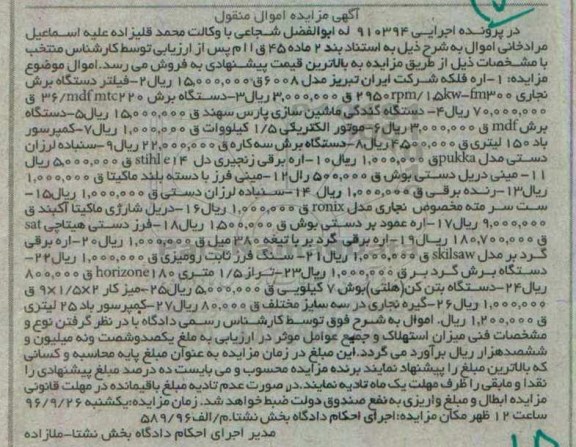 آگهی مزایده اموال منقول
در پرونده اجرایی ۹۱۰۳۹۴ له ابوالفضل شجاعی با وکالت محمد قلیزاده علیه اسماعیل
مرادخانی اموال به شرح ذیل به استناد بند ۲ ماده ۴۵ ق ا ا م پس از ارزیابی توسط کارشناس منتخب
با مشخصات ذیل از طریق مزایده به بالاترین قیمت پیشنهادی به فروش می رسد. اموال موضوع
مزایده: ۱-اره فلکه شرکت ایران تبریز مدل ۶۰۰۸ق ۱۵,۰۰۰,۰۰۰ ریال۲-فیلتر دستگاه برش
نجاری ۲۹۵۰rpm/۱,۵kw-fm۳۰۰ ق ۳,۰۰۰,۰۰۰ ریال۳-دستگاه برش ۳۶/mdf mtc۲۲۰ ق
۷۰,۰۰۰,۰۰۰ ریال۴- دستگاه کندگی ماشین سازی پارس سهند ق ۱۵,۰۰۰,۰۰۰ ریال۵-دستگاه
برش mdf ق ۳,۰۰۰,۰۰۰ ریال۶-موتور الکتریکی ۱/۵ کیلووات ق ۱,۰۰۰,۰۰۰ ریال۷-کمپرسور
باد ۱۵۰ لیتری ق ۴,۵۰۰,۰۰۰ ریال۸-دستگاه برش سه کاره ق ۲۲,۰۰۰,۰۰۰ ریال۹-سنباده لرزان
دستی مدل pukkaق ۱,۰۰۰,۰۰۰ ریال۱۰-اره برقی زنجیری دل stihl e۱۴ ق ۵,۰۰۰,۰۰۰ ریال
۱۱- مینی دریل دستی بوش ق ۵۰۰,۰۰۰ ریال۱۲-مینی فرز با دسته بلند ماکیتا ق ۱,۰۰۰,۰۰۰
ریال۱۳-رنده برقی ق ۱,۰۰۰,۰۰۰ ریال ۱۴-سنباده لرزان دستی ق ۱,۰۰۰,۰۰۰ ریال۱۵-
ست سر مته مخصوص نجاری مدل ronix ق ۱,۰۰۰,۰۰۰ ریال۱۶-دریل شارژی ماکیتا آکبند ق
۹,۰۰۰,۰۰۰ ریال۱۷-اره عمود بر دستی بوش ق ۱,۵۰۰,۰۰۰ ریال۱۸-فرز دستی هیتاچی sat
ق ۱۸۰,۷۰۰,۰۰۰ ریال۱۹-اره برقی گرد بر با تیغه ۳۸۰ میل ق ۱,۰۰۰,۰۰۰ ریال۲۰-اره برقی
گرد بر مدل skilsaw ق ۱,۰۰۰,۰۰۰ ریال۲۱- سنگ فرز ثابت رومیزی ق ۱,۰۰۰,۰۰۰ ریال۲۲-
دستگاه برش گرد بر ق ۱,۰۰۰,۰۰۰ ریال۲۳-تراز ۱/۵ متری horizone۱۸۰ ق ۸۰۰,۰۰۰
ریال۲۴-دستگاه بتن کن(هلتی)بوش ۷ کیلویی ق ۵,۰۰۰,۰۰۰ ریال۲۵-میز کار ۲×۱/۵×۹ ق
۱,۰۰۰,۰۰۰ ریال۲۶-گیره نجاری در سه سایز مختلف ق ۸۰,۰۰۰ ریال۲۷-کمپرسور باد ۲۵ لیتری
ق ۱,۲۰۰,۰۰۰ ریال. اموال به شرح فوق توسط کارشناس رسمی دادگاه با در نظر گرفتن نوع و
مشخصات فنی میزان استهلاک و جمیع عوامل موثر در ارزیابی به ملغ یکصدوشصت ونه میلیون و
ششصدهزار ریال برآورد می گردد.این مبلغ در زمان مزایده به عنوان مبلغ پایه محاسبه و کسانی
که بالاترین مبلغ را پیشنهاد نمایند برنده مزایده محسوب و می بایست ده در صد مبلغ پیشنهادی را
نقدا و مابقی را ظرف مهلت یک ماه تادیه نمایند.در صورت عدم تادیه مبلغ باقیمانده در مهلت قانونی
مزایده ابطال و مبلغ واریزی به نفع صندوق دولت ضبط خواهد شد. زمان مزایده:یکشنبه ۹۶/۹/۲۶
ساعت ۱۲ ظهر مکان مزایده:اجرای احکام دادگاه بخش نشتا.م/الف۵۸۹/۹۶
مدیر اجرای احکام دادگاه بخش نشتا-ملازاده